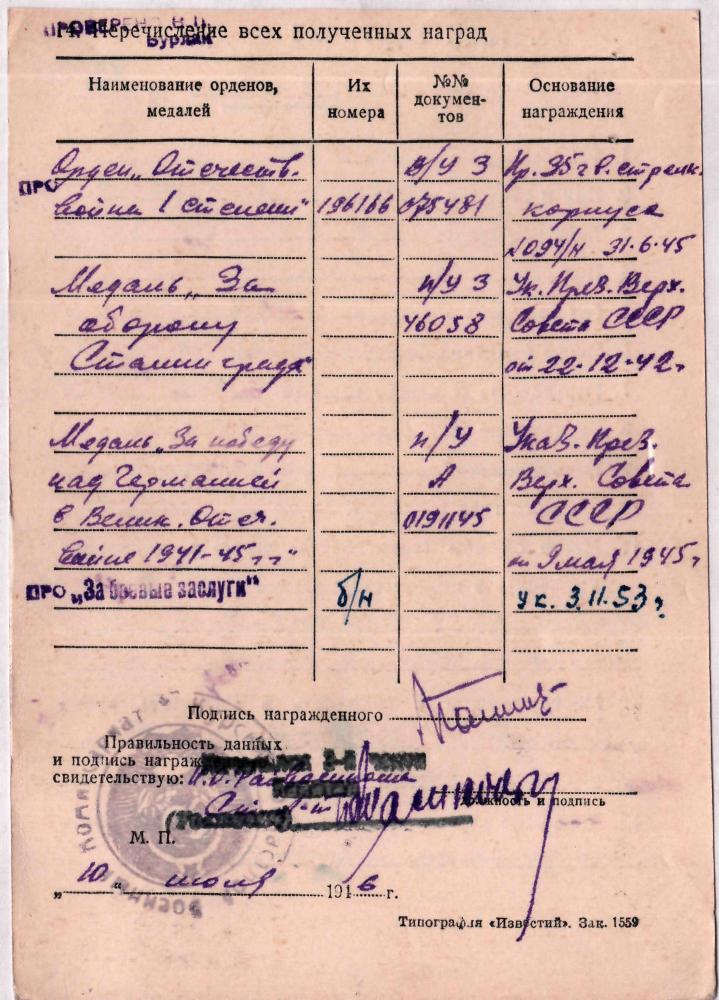 ПРОВЕРЕНО В.П.
Бурлак
14. Перечисление всех полученных наград
Наименование орденов, медалей
Их номера
№№ документов
Основание награждения
Орден „Отечеств. в/у З Пр. 35 гв. стрелк.
ПРО
война I степени" 196166 075481 корпуса
№ 094/н 31-6-45
Медаль „За п/у З Ук. През. Верх.
оборону 46058 Совета СССР
Сталинграда" от 22-12-42г
Медаль „За победу п/у Указ. През.
над Германией А Верх. Совета
в Велик. Отеч. 0191145 СССР
войне 1941-45гг" от 9 мая 1945г
ПРО „За боевые заслуги" б/н Ук. 3.11.53г
Подпись награжденного
Правильность данных
и подпись награж
свидетельствую:
должность и подпись
М. П.
„10" июля 1946 г.
Типография «Известий». Зак. 1559